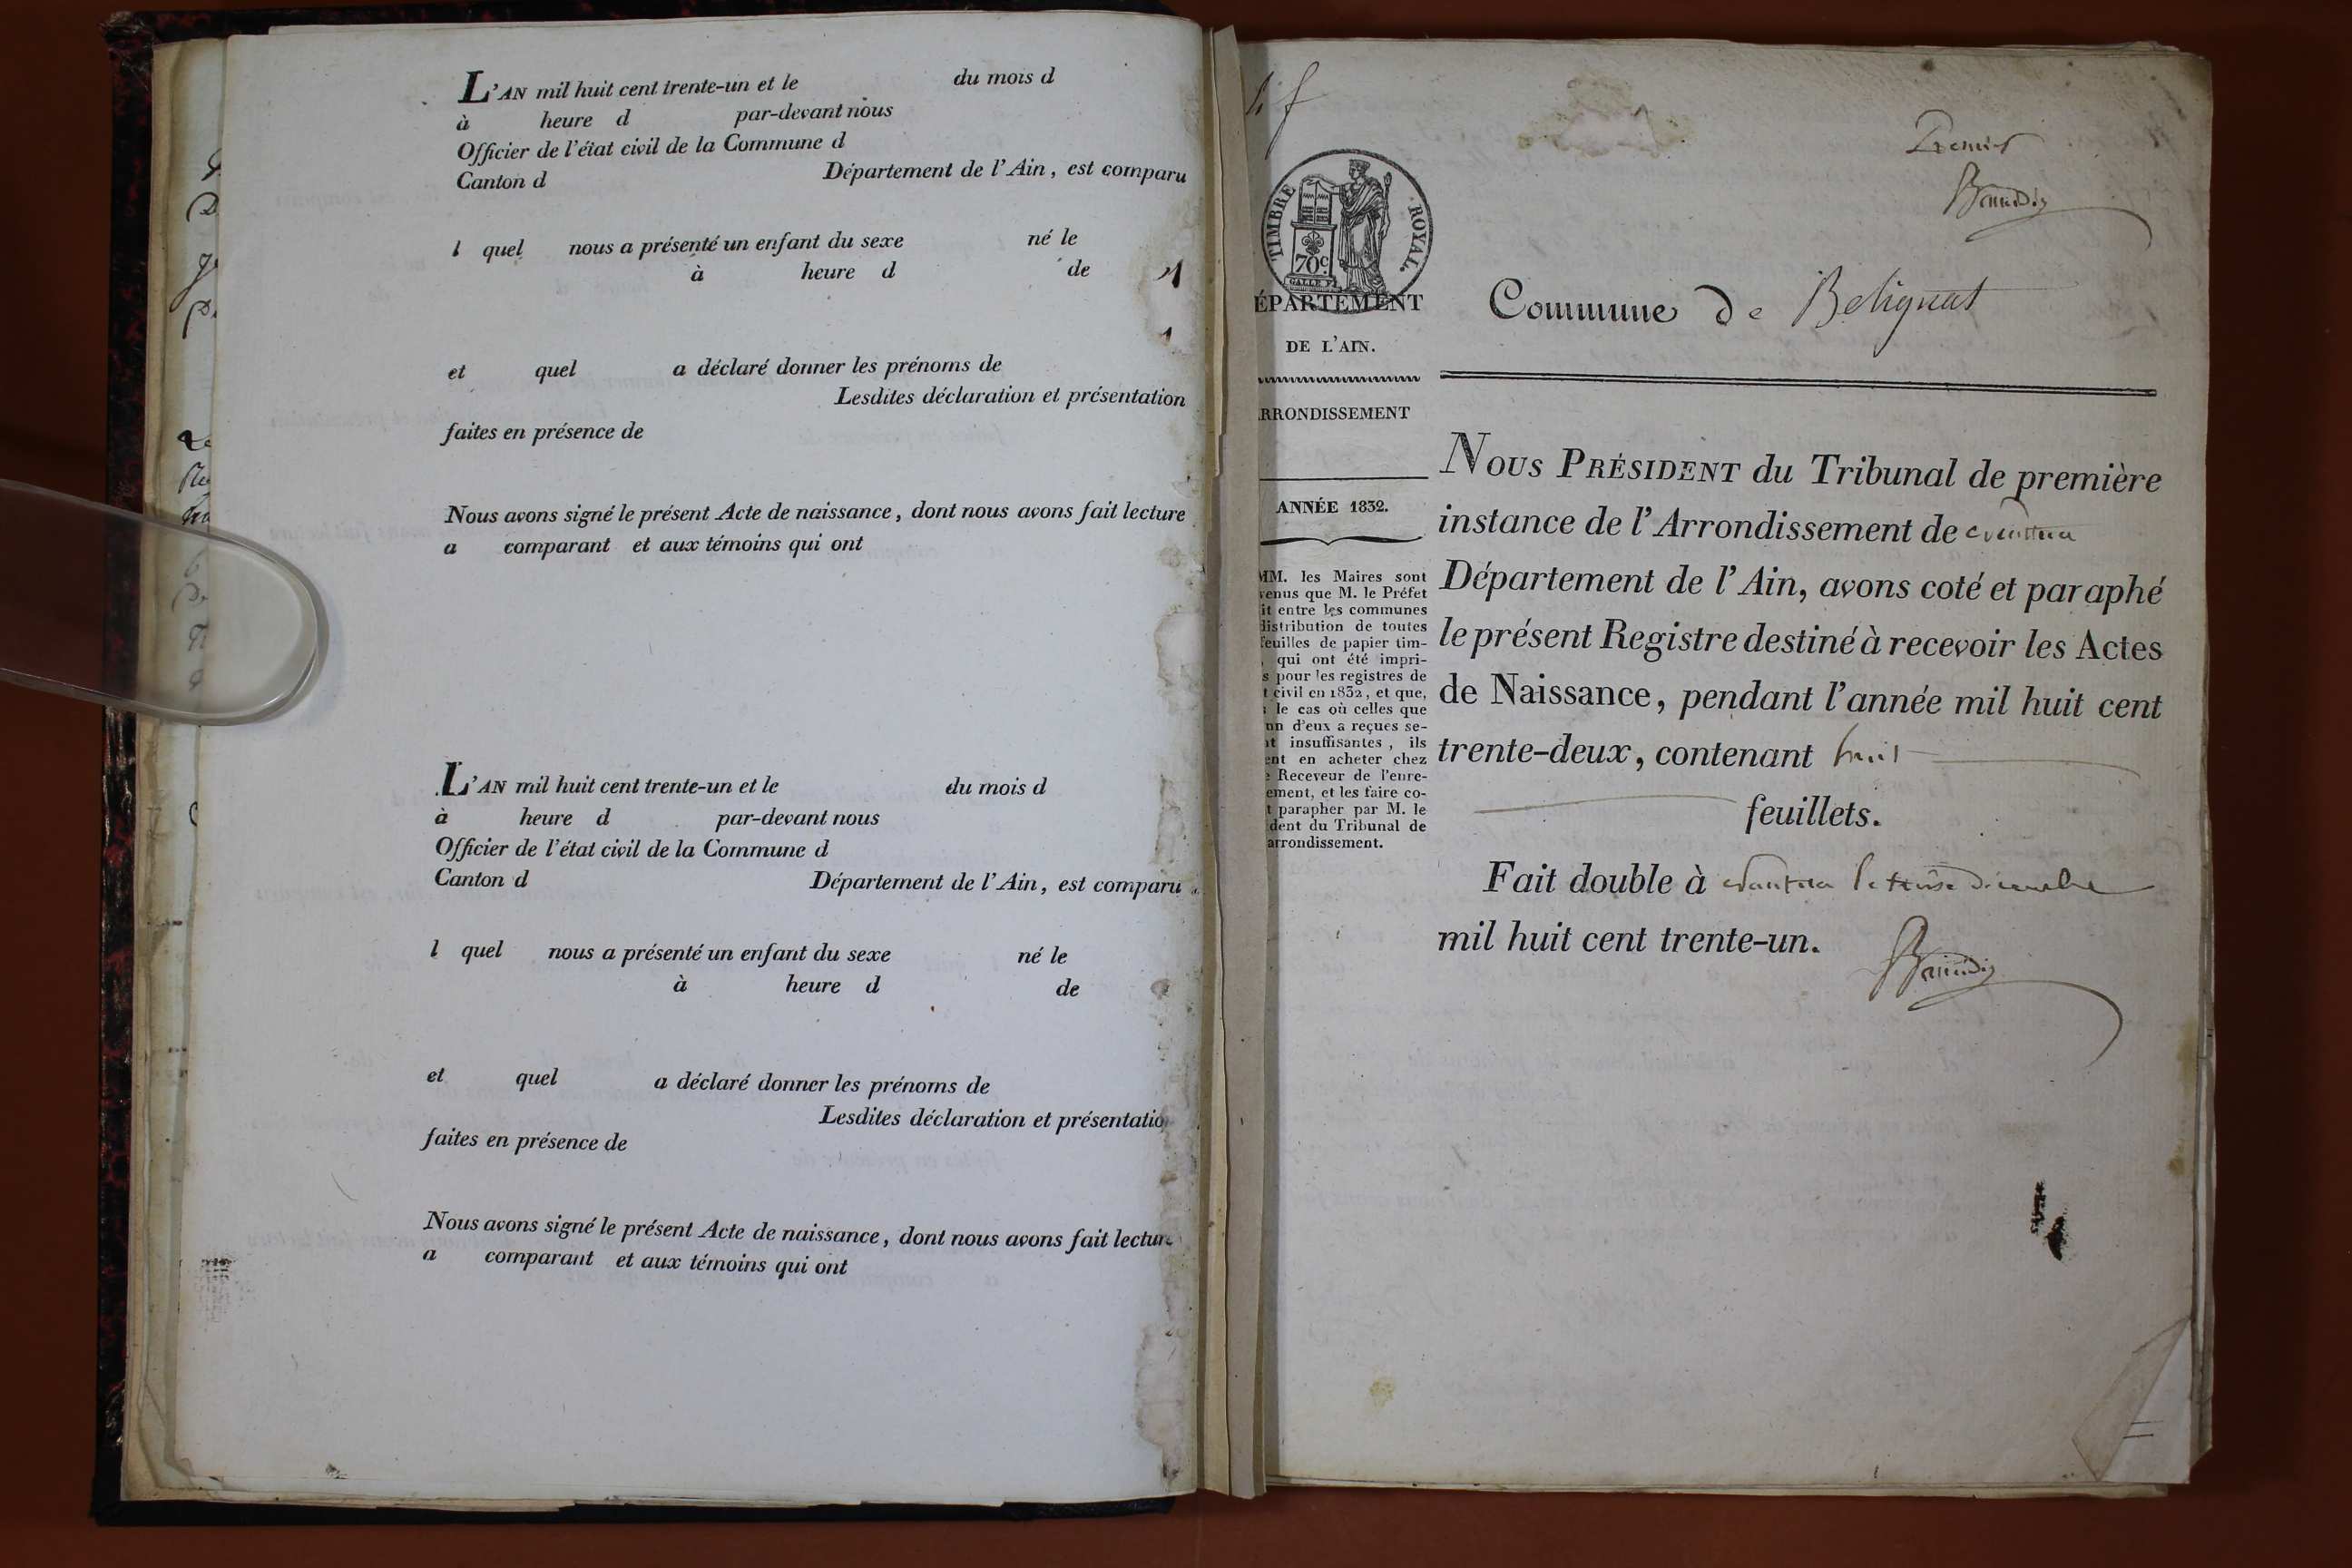 L'AN mil huit cent trente-un et le du mois d
à heure d par-devant nous
Officier de l'état civil de la Commune d
Canton d Département de l'Ain, est comparu
l quel nous a présenté un enfant du sexe né le
à heure d de
et quel a déclaré donner les prénoms de
Lesdites déclaration et présentation
faites en présence de
Nous avons signé le présent Acte de naissance, dont nous avons fait lecture
a comparant et aux témoins qui ont
L'AN mil huit cent trente-un et le du mois d
à heure d par-devant nous
Officier de l'état civil de la Commune d
Canton d Département de l'Ain, est comparu
l quel nous a présenté un enfant du sexe né le
à heure d de
et quel a déclaré donner les prénoms de
Lesdites déclaration et présentatio
faites en présence de
Nous avons signé le présent Acte de naissance, dont nous avons fait lecture
a comparant et aux témoins qui ont
Premier
TIMBRE ROYAL.
70c.
ÉPARTEMENT
DE L'AIN.
RRONDISSEMENT
ANNÉE 1832.
MM. les Maires sont
venus que M. le Préfet
it entre les communes
distribution de toutes
feuilles de papier tim-
qui ont été impri-
s pour les registres de
t civil en 1832, et que,
le cas où celles que
un d'eux a reçues se-
nt insuffisantes, ils
ent en acheter chez
e Receveur de l'enre-
ement, et les faire co-
t parapher par M. le
ident du Tribunal de
arrondissement.
Commune de Belignat
NOUS PRÉSIDENT du Tribunal de première
instance de l'Arrondissement de Nantua
Département de l'Ain, avons coté et paraphé
le présent Registre destiné à recevoir les Actes
de Naissance, pendant l'année mil huit cent
trente-deux, contenant huit
feuillets.
Fait double à Nantua le treize décembre
mil huit cent trente-un.